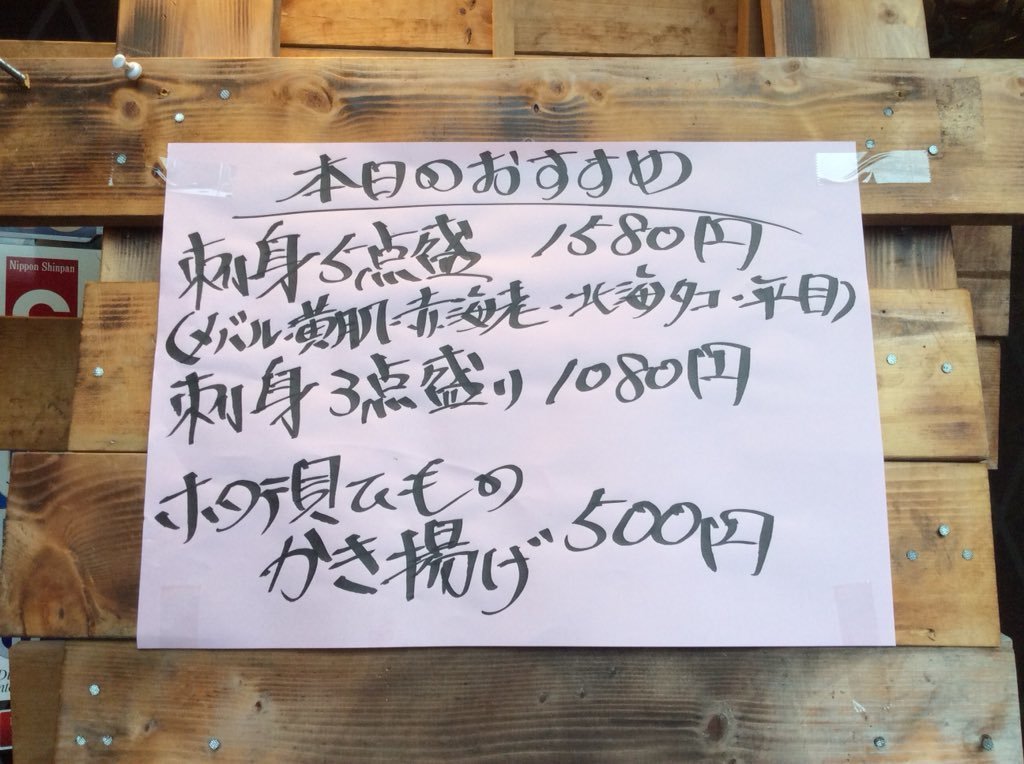 本日のおすすめ
刺身5点盛 1580円
(メバル・黄肌・赤海老・北海タコ・平目)
刺身3点盛り 1080円
ホタテ貝ひもの
かき揚げ 500円
Nippon Shinpan